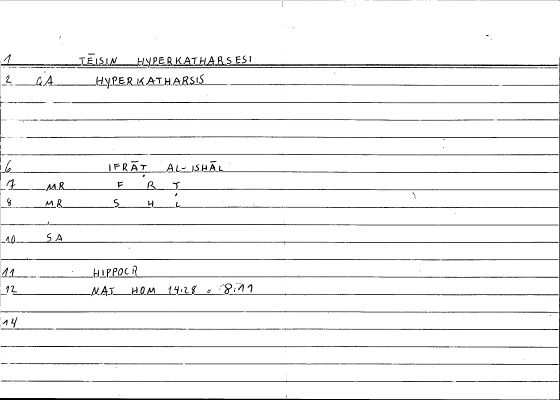 1 TĒISIN HYPERKATHARSESI
2 GA HYPERKATHARSIS
6 IFRĀṬ AL-ISHĀL
7 MR F R Ṭ
8 MR S H L
10 SA
11 HIPPOCR
12 NAT HOM 14:28 = 8:11
14